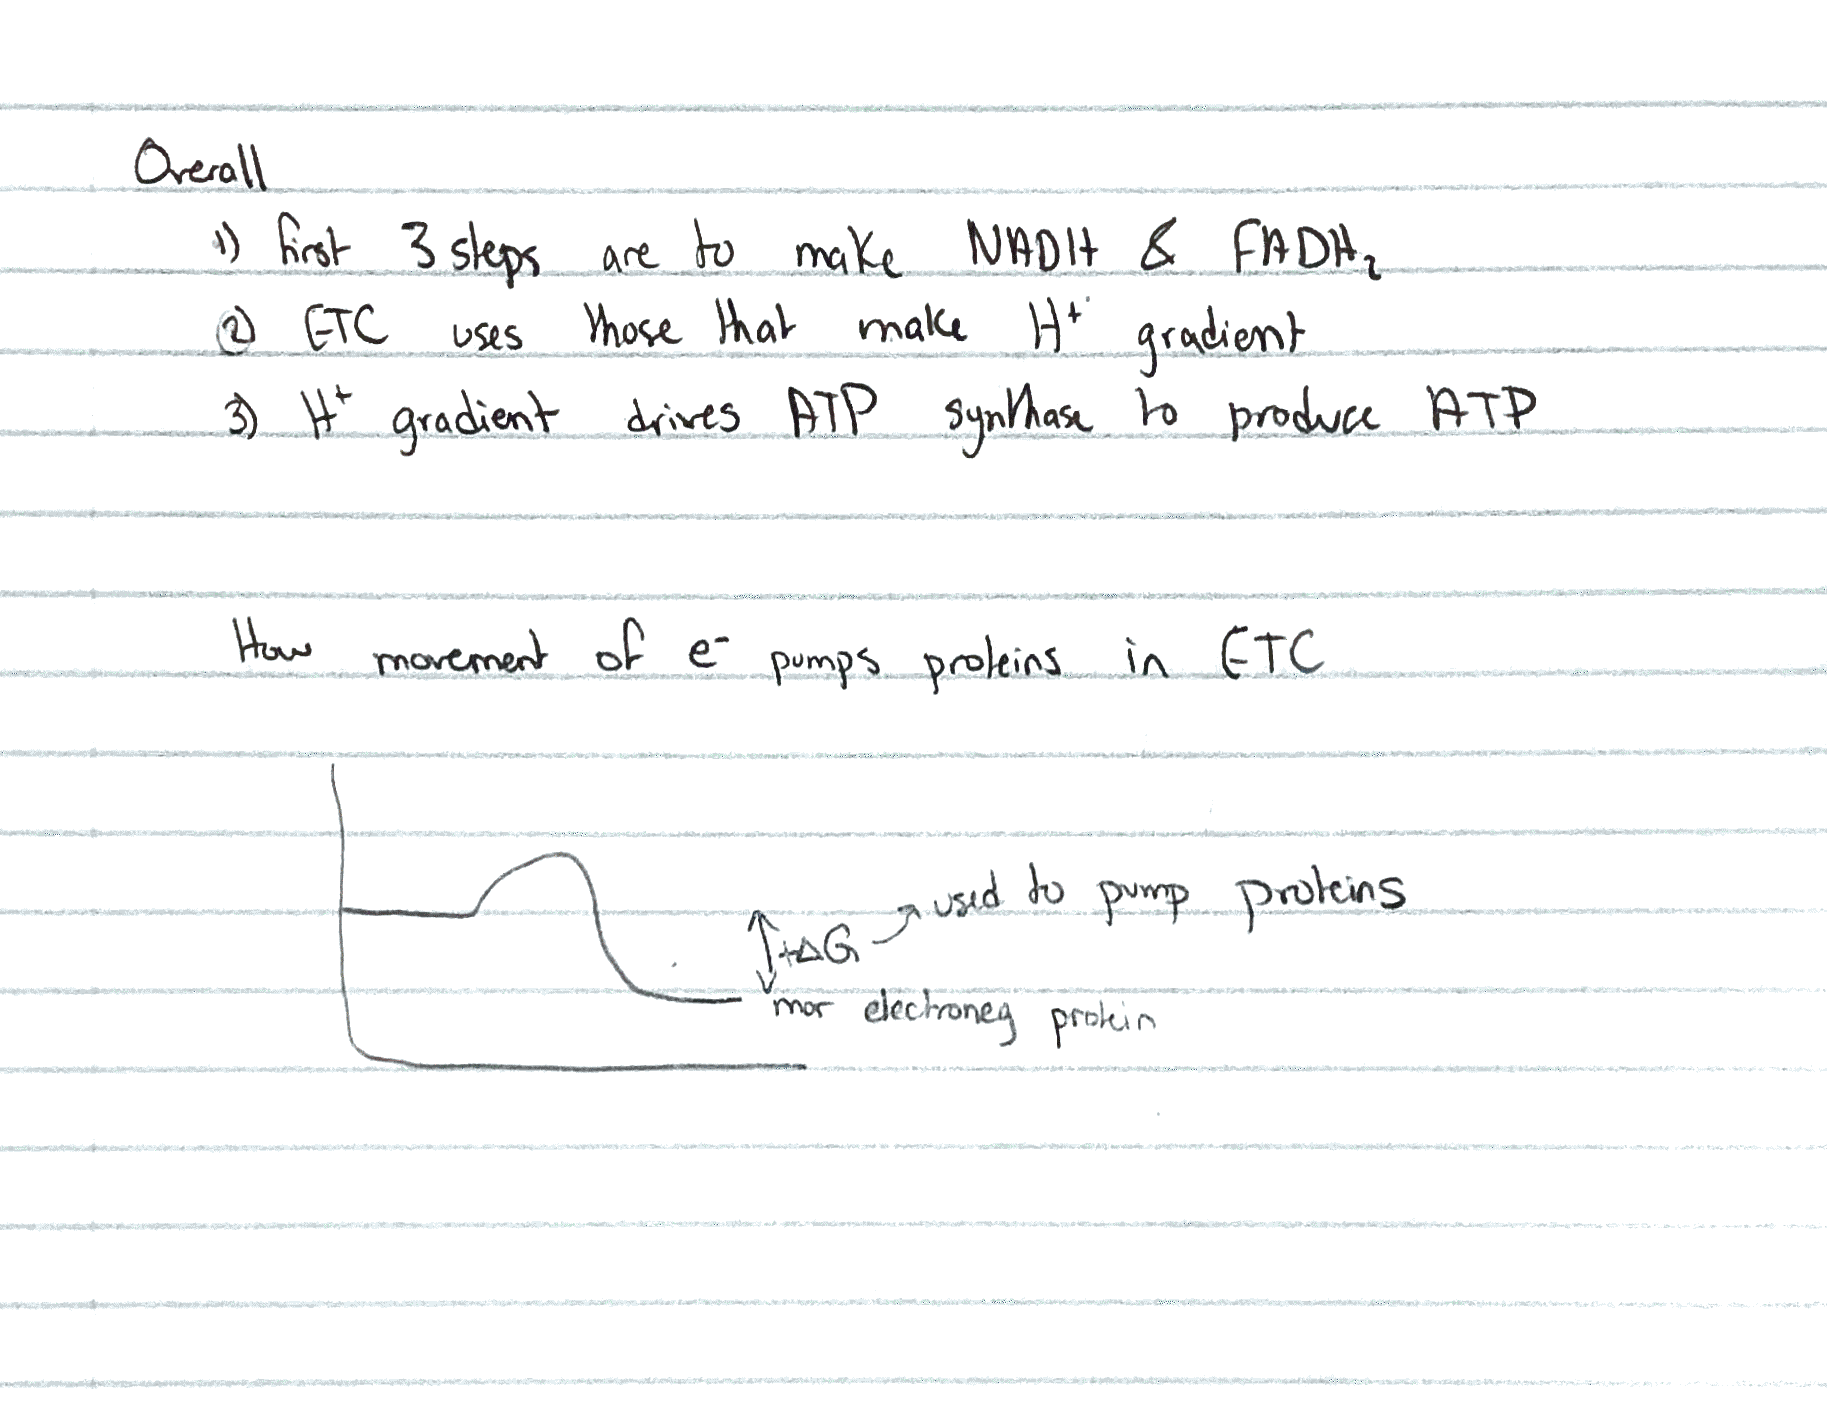 Overall
1) first 3 steps are to make NADH & FADH₂
2) ETC uses those that make H⁺ gradient
3) H⁺ gradient drives ATP synthase to produce ATP
How movement of e⁻ pumps proteins in ETC
+ΔG → used to pump proteins
mor electroneg protein